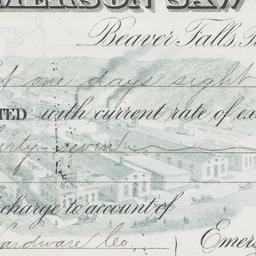 MERSON SAW
Beaver Falls, P
At one days sight
TED with current rate of ex
irty seven
charge to account of
Hardware Co. Emers